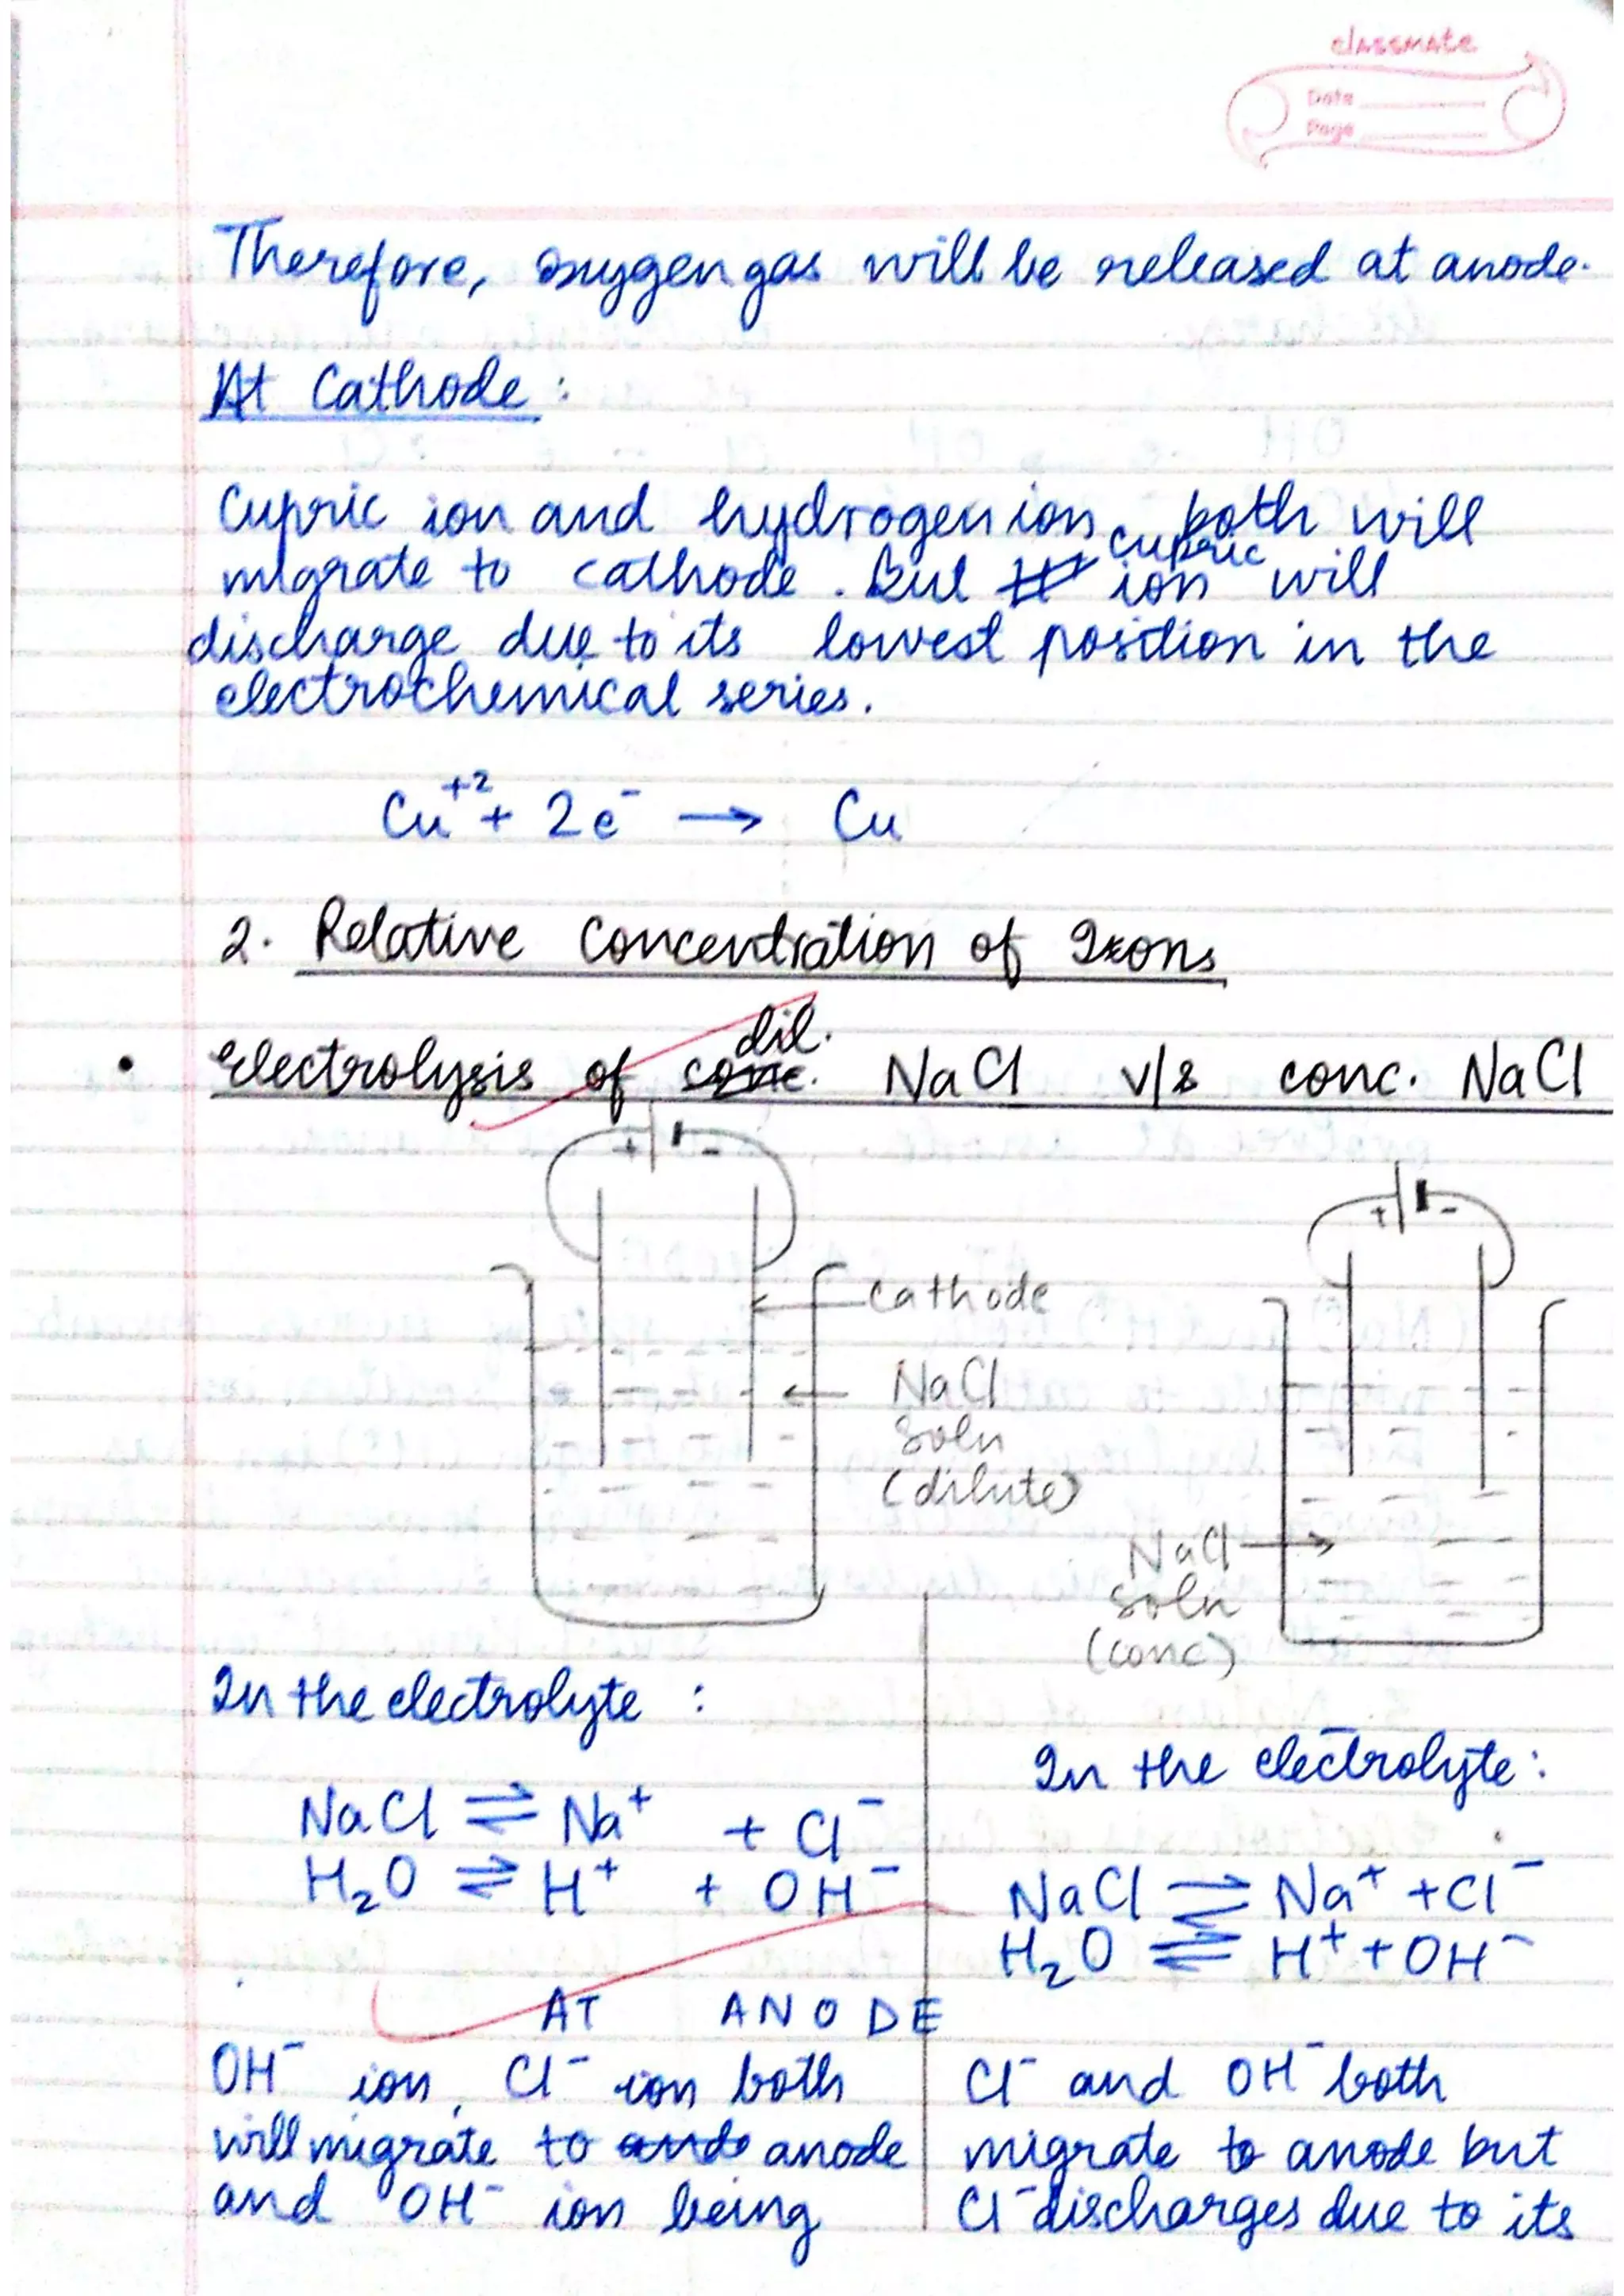 classmate
Date
Page
Therefore, oxygen gas will be released at anode.
At Cathode :
Cupric ion and hydrogen ion both will
migrate to cathode. But cupric ion will
discharge due to its lowest position in the
electrochemical series.
Cu⁺² + 2e⁻ → Cu
2. Relative Concentration of Ions
• Electrolysis of dil. NaCl v/s conc. NaCl
+ -
+ -
cathode
NaCl
soln
(dilute)
NaCl
soln
(conc)
In the electrolyte :
NaCl ⇌ Na⁺ + Cl⁻
H₂O ⇌ H⁺ + OH⁻
In the electrolyte :
NaCl ⇌ Na⁺ + Cl⁻
H₂O ⇌ H⁺ + OH⁻
AT ANODE
OH⁻ ion, Cl⁻ ion both
will migrate to anode
and OH⁻ ion being
Cl⁻ and OH⁻ both
migrate to anode but
Cl⁻ discharges due to its